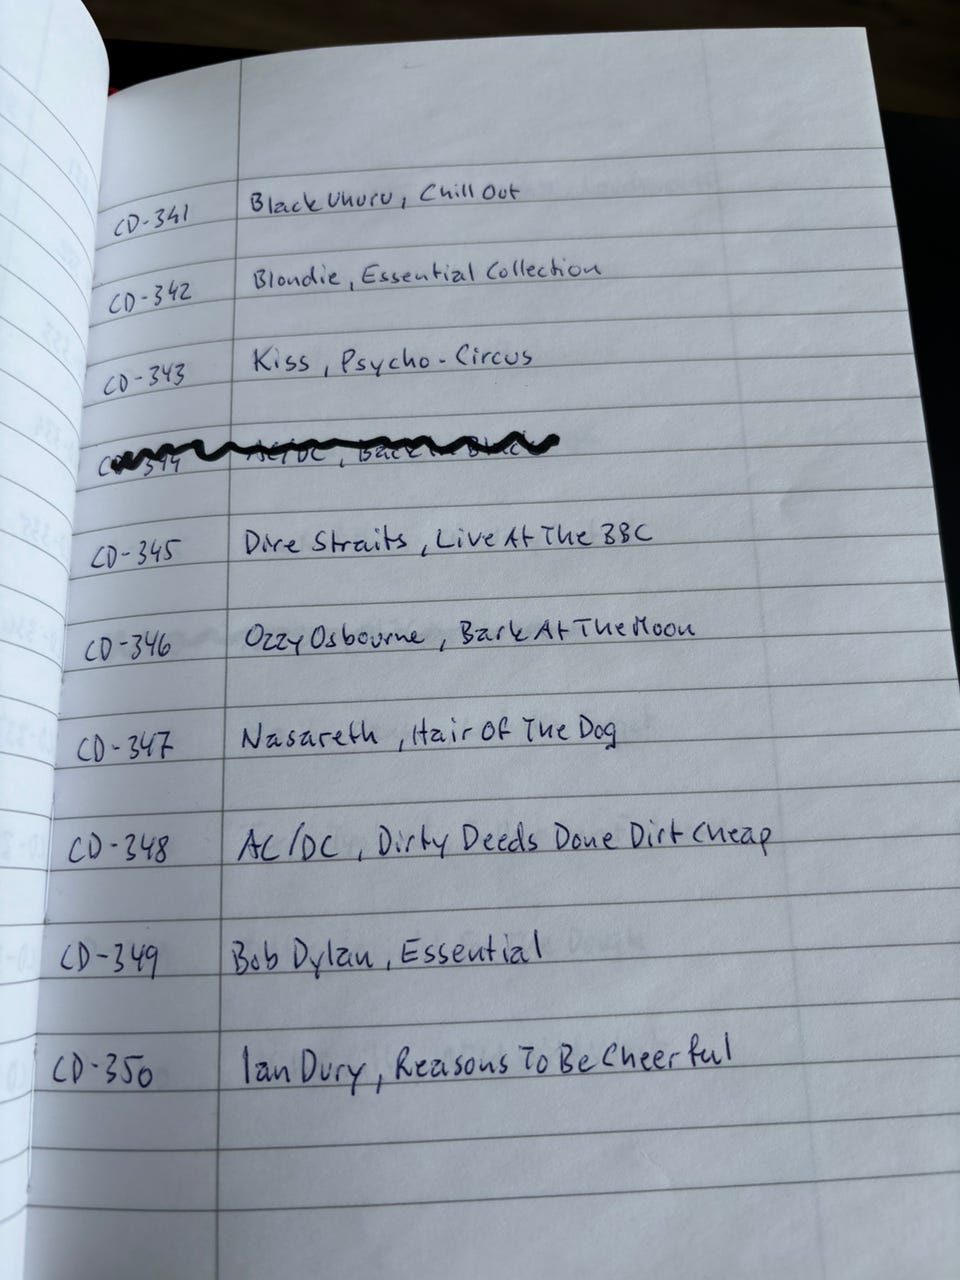 CD-341 Black Uhuru, Chill Out
CD-342 Blondie, Essential Collection
CD-343 Kiss, Psycho-Circus
CD-344 AC/DC, Back In Black
CD-345 Dire Straits, Live At The BBC
CD-346 Ozzy Osbourne, Bark At The Moon
CD-347 Nasareth, Hair Of The Dog
CD-348 AC/DC, Dirty Deeds Done Dirt Cheap
CD-349 Bob Dylan, Essential
CD-350 Ian Dury, Reasons To Be Cheerful